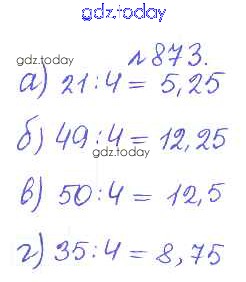 gdz.today
gdz.today №873.
а) 21:4 = 5,25
б) 49:4 = 12,25
gdz.today
в) 50:4 = 12,5
г) 35:4 = 8,75
gdz.today